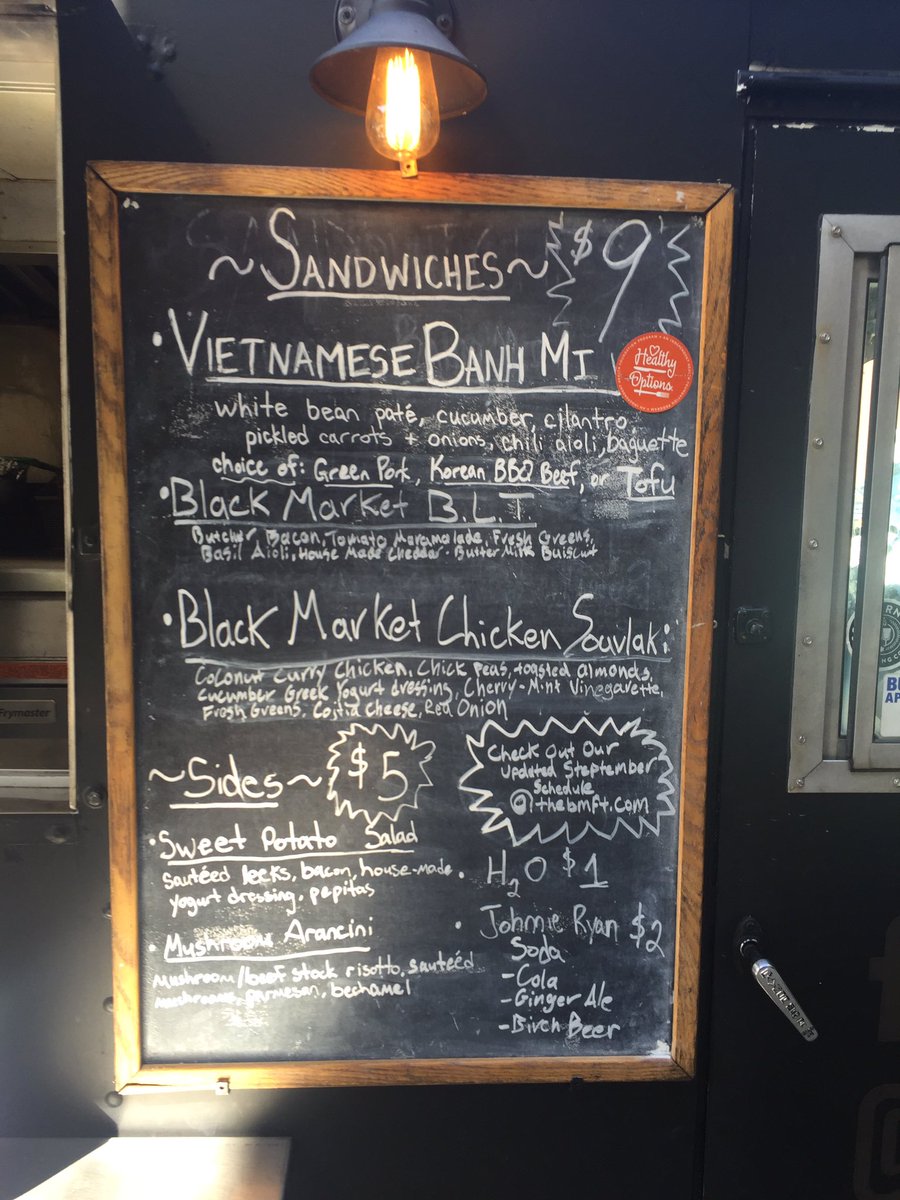 ~SANDWICHES~ $9
• VIETNAMESE BANH MI
Healthy Options
white bean paté, cucumber, cilantro
pickled carrots + onions, chili aioli, baguette
choice of: Green Pork, Korean BBQ Beef, or Tofu
• Black Market B.L.T
Butcher Bacon, Tomato Maramalade, Fresh Greens,
Basil Aioli, House Made Cheddar - Butter Milk Buiscut
• Black Market Chicken Souvlaki
Coconut Curry Chicken, Chick Peas, toasted almonds,
Cucumber Greek Yogurt dressing, Cherry-Mint Vinegarette,
Fresh Greens, Cojtia Cheese, Red Onion
~Sides~ $5
Check Out Our
Updated Steptember
Schedule
@thebmft.com
• Sweet Potato Salad
Sautéed leeks, bacon, house-made
yogurt dressing, pepitas
• Mushroom Arancini
Mushroom/beef stock risotto, sautéed
mushrooms, parmesan, bechamel
• H2O $1
• Johnnie Ryan $2
Soda
- Cola
- Ginger Ale
- Birch Beer
Frymaster